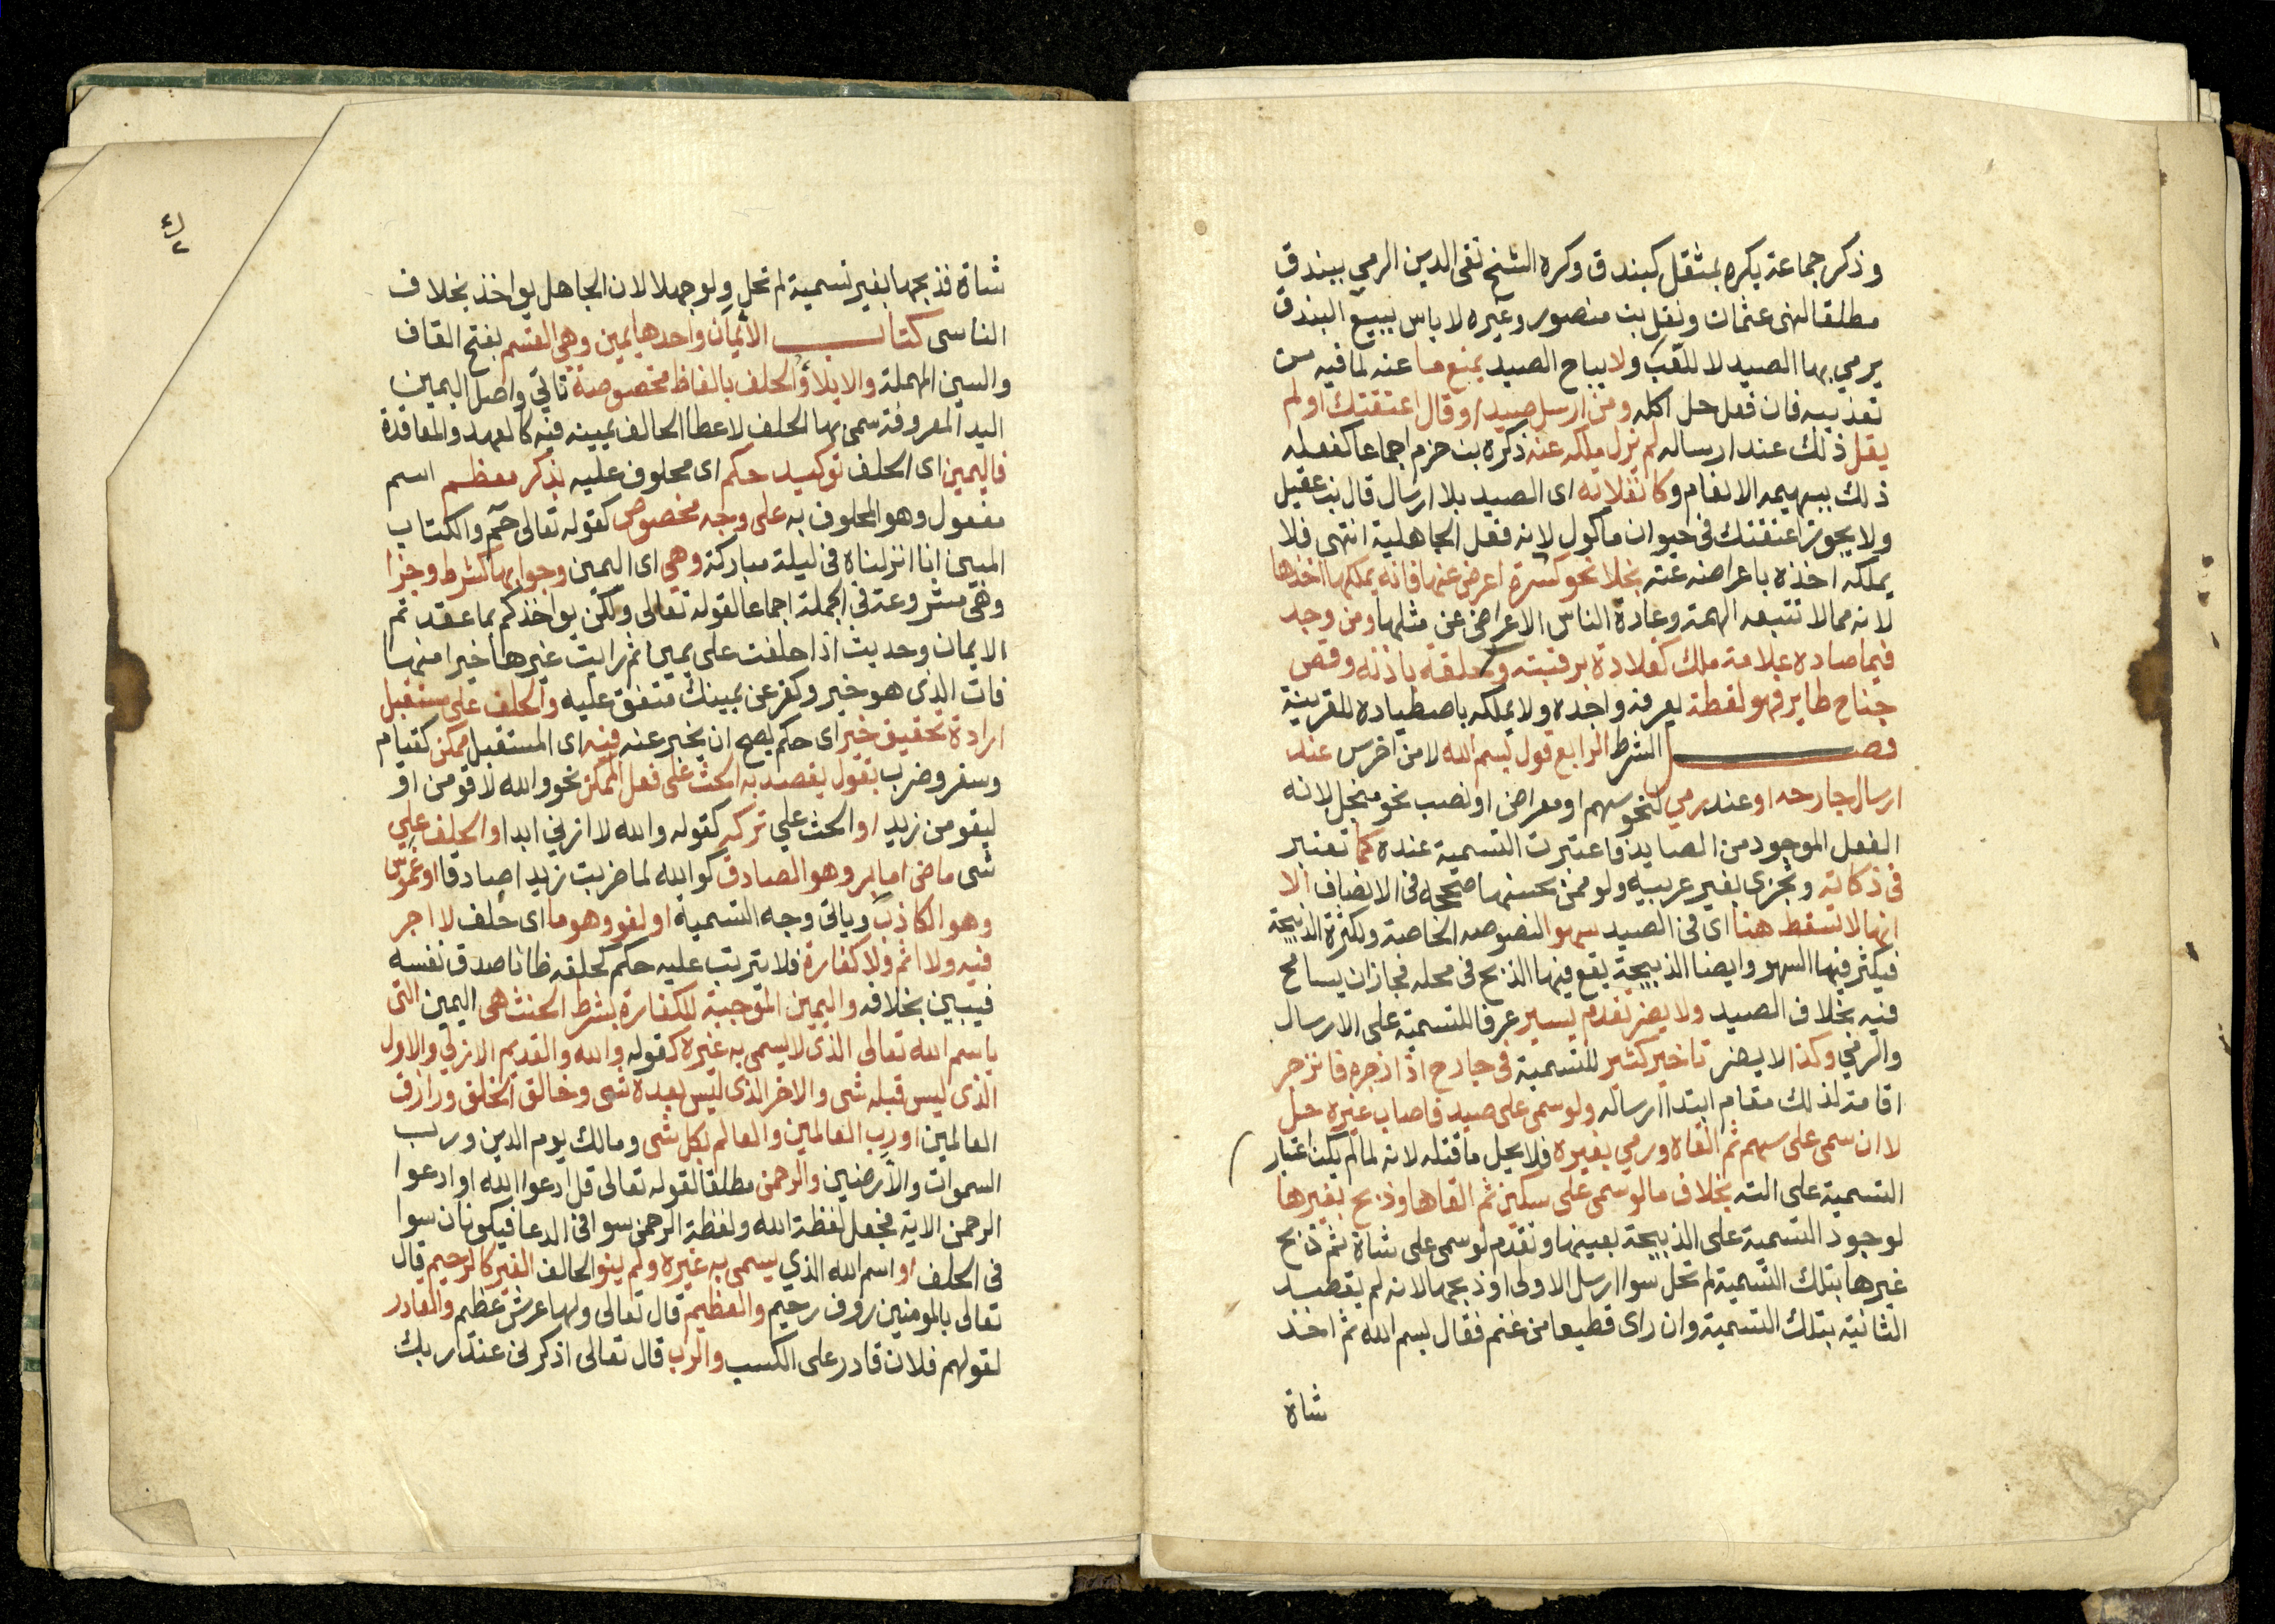 وذكر جماعة يكره بمثقل كبندق وكره الشيخ تقى الدين الرمي ببندق
مطلقا لنهى عثمان ونقل بن منصور وغيره لا باس ببيع البندق
يرمي بها الصيد لا للعب ولا يباح الصيد بمنع ما عنه لما فيه من
تعذيبه فان فعل حل اكله ومن ارسل صيدا وقال اعتقتك او لم
يقل ذلك عند ارساله لم يزل ملكه عنه ذكره بن حزم اجماعا كفعله
ذلك ببهيمه الانعام وكانفلاته اى الصيد بلا ارسال قال بن عقيل
ولا يجوز اعتقتك فى حيوان ماكول لانه فعل الجاهلية انتهى فلا
يملكه اخذه باعراضه عنه بخلا نحو كسرة اعرض عنها فانه يملكها اخذها
لانه مما لا تتبعه الهمة وعادة الناس الاعراض عن مثلها ومن وجد
فيما صاده علامة ملك كقلادة برقبته وكحلقة باذنه وقص
جناح طاير فهو لقطة يعرفه واجده ولا يملكه باصطياده للقرينة
فصل الشرط الرابع قول بسم الله لا من اخرس عند
ارسال جارحه او عند رمي لنحو سهم او معراض او نصب نحو منجل لانه
الفعل الموجود من الصايد فاعتبرت التسمية عنده كما تعتبر
فى ذكاته وتجزى بغير عربيه ولو ممن يحسنها صححه فى الانصاف الا
انها لا تسقط هنا اى فى الصيد سهوا لنصوصه الخاصة ولكثرة الذبيحة
فيكثر فيها السهو وايضا الذبيحة يقع فيها الذبح فى محله فجاز ان يسامح
فيه بخلاف الصيد ولا يضر تقدم يسير عرفا للتسمية على الارسال
والرمي وكذا لا يضر تاخير كثير للتسمية فى جارح اذا زجره فانزجر
اقامة لذلك مقام ابتدا ارساله ولو سمى على صيد فاصاب غيره حل
لا ان سمى على سهم ثم القاه ورمي بغيره فلا يحل ما قتله لانه لما لم يكن اعتبار
التسمية على الته بخلاف ما لو سمى على سكين ثم القاها وذبح بغيرها
لوجود التسمية على الذبيحة بعينها وتقدم لو سمى على شاة ثم ذبح
غيرها بتلك التسمية لم تحل سوا ارسل الاولى او ذبحها لانه لم يقصد
الثانية بتلك التسمية وان راى قطيعا من غنم فقال بسم الله ثم اخذ
شاة
شاة فذبحها بغير تسمية لم تحل ولو جهلا لان الجاهل يواخذ بخلاف
الناسى كتاب الايمان واحدها يمين وهي القسم بفتح القاف
والسين المهملة والايلاؤ الحلف بالفاظ مخصوصة تاتي واصل اليمين
اليد المعروفة سمى بها الحلف لاعطا الحالف يمينه فيه كالعهد والمعاقدة
فاليمين اى الحلف توكيد حكم اى محلوف عليه بذكر معظم اسم
مفعول وهو المحلوف به على وجه مخصوص كقوله تعالى حم والكتاب
المبين انا انزلناه فى ليلة مباركة وهي اى اليمين وجوابها كشرط وجزا
وهى مشروعة فى الجملة اجماعا لقوله تعالى ولكن يواخذكم بما عقدتم
الايمان وحديث اذا حلفت على يمين ثم رايت غيرها خيرا منها
فات الذى هو خير وكفر عن يمينك متفق عليه والحلف على مستقبل
ارادة تحقيق خبر اى حكم يصح ان يخبر عنه فيه اى المستقبل ممكن كقيام
وسفر وضرب بقول يقصد به الحث على فعل الممكن نحو والله لاقومن او
ليقومن زيد او الحث علي تركه كقوله والله لا ازني ابدا او الحلف علي
شى ماضى اما بر وهو الصادق كوالله لما ضربت زيدا صادقا او غموس
وهو الكاذب وياتى وجه التسمية او لغو وهو ما اى حلف لا اجر
فيه ولا اثم ولا كفارة فلا يترتب عليه حكم كحلفه ظانا صدق نفسه
فيبين بخلافه واليمين الموجبة للكفارة بشرط الحنث هى اليمين التى
باسم الله تعالى الذى لا يسمى به غيره كقوله والله والقديم الازلي والاول
الذى ليس قبله شى والاخر الذى ليس بعده شى وخالق الخلق ورازق
العالمين او رب العالمين والعالم بكل شى ومالك يوم الدين ورب
السموات والأرضين والرحمن مطلقا لقوله تعالى قل ادعوا الله او ادعوا
الرحمن الاية فجعل لفظة الله ولفظة الرحمن سوا فى الدعا فيكونان سوا
فى الحلف او اسم الله الذي يسمى به غيره ولم ينو الحالف الغير كالرحيم قال
تعالى بالمومنين روف رحيم والعظيم قال تعالى ولها عرش عظيم والقادر
لقولهم فلان قادر على الكسب والرب قال تعالى اذكرنى عند ربك